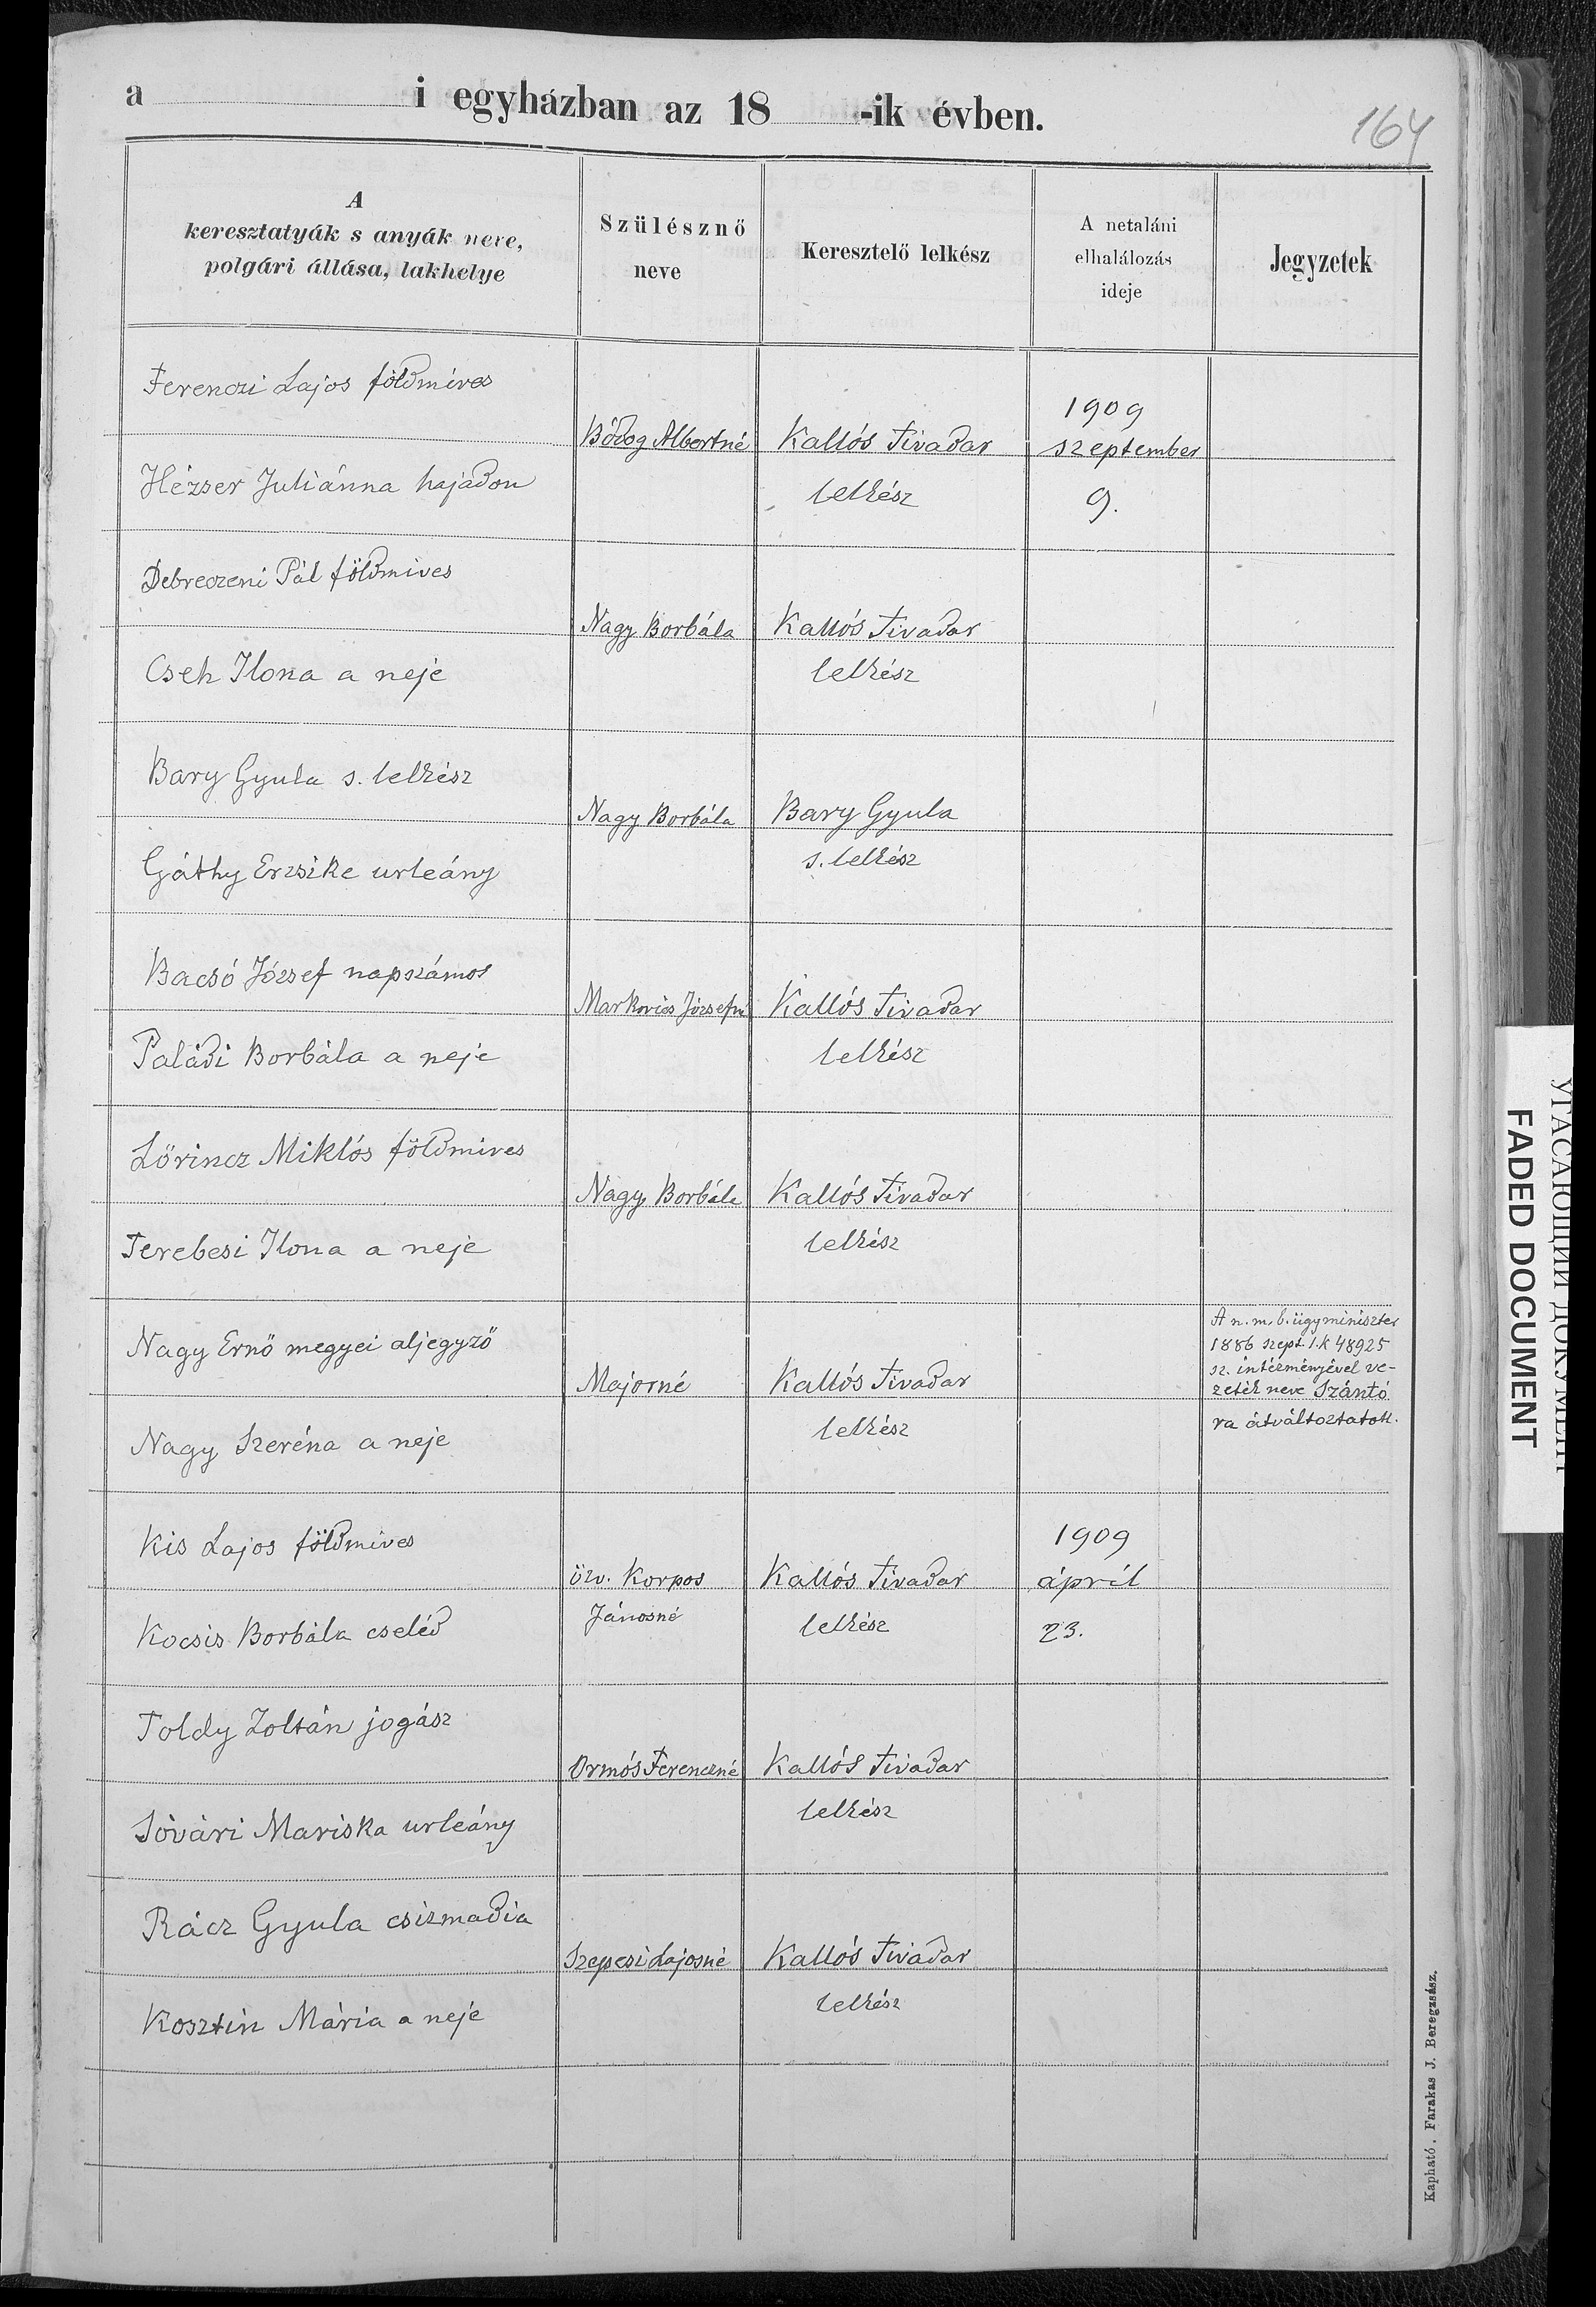 a i egyházban az 18 -ik évben.
164
A
keresztatyák s anyák neve,
polgári állása, lakhelye
Szülésznő
neve
Keresztelő lelkész
A netaláni
elhalálozás
ideje
Jegyzetek
Ferenczi Lajos földmíves
Bódog Albertné Kallós Tivadar 1909
szeptember
Hézser Juliánna hajadon lelkész 9.
Debreczeni Pál földmives
Nagy Borbála Kallós Tivadar
Cseh Ilona a neje lelkész
Bary Gyula s. lelkész
Nagy Borbála Bary Gyula
Gáthy Erzsike urleány s. lelkész
Bacsó József napszámos
Markovics Józsefné Kallós Tivadar
Paládi Borbála a neje lelkész
Lőrincz Miklós földmives
Nagy Borbála Kallós Tivadar
Terebesi Ilona a neje lelkész
Nagy Ernő megyei aljegyző
Majorné Kallós Tivadar
Nagy Szeréna a neje lelkész
A n. m. b. ügyminiszter
1886 szept. 1.k 48925
sz. intézményével ve-
zeték neve Szántó
ra átváltoztatott.
Kis Lajos földmives 1909
özv. Korpos Kallós Tivadar ápríl
Jánosné lelkész 23.
Kocsis Borbála cseléd
Toldy Zoltán jogász
Ormós Ferenczné Kallós Tivadar
Sóvári Mariska urleány lelkész
Rácz Gyula csizmadia
Szepesi Lajosné Kallós Tivadar
Kosztin Mária a neje lelkész
Kapható, Farakas J. Beregzsász.
УГАСАЮЩИЙ ДОКУМЕНТ
FADED DOCUMENT